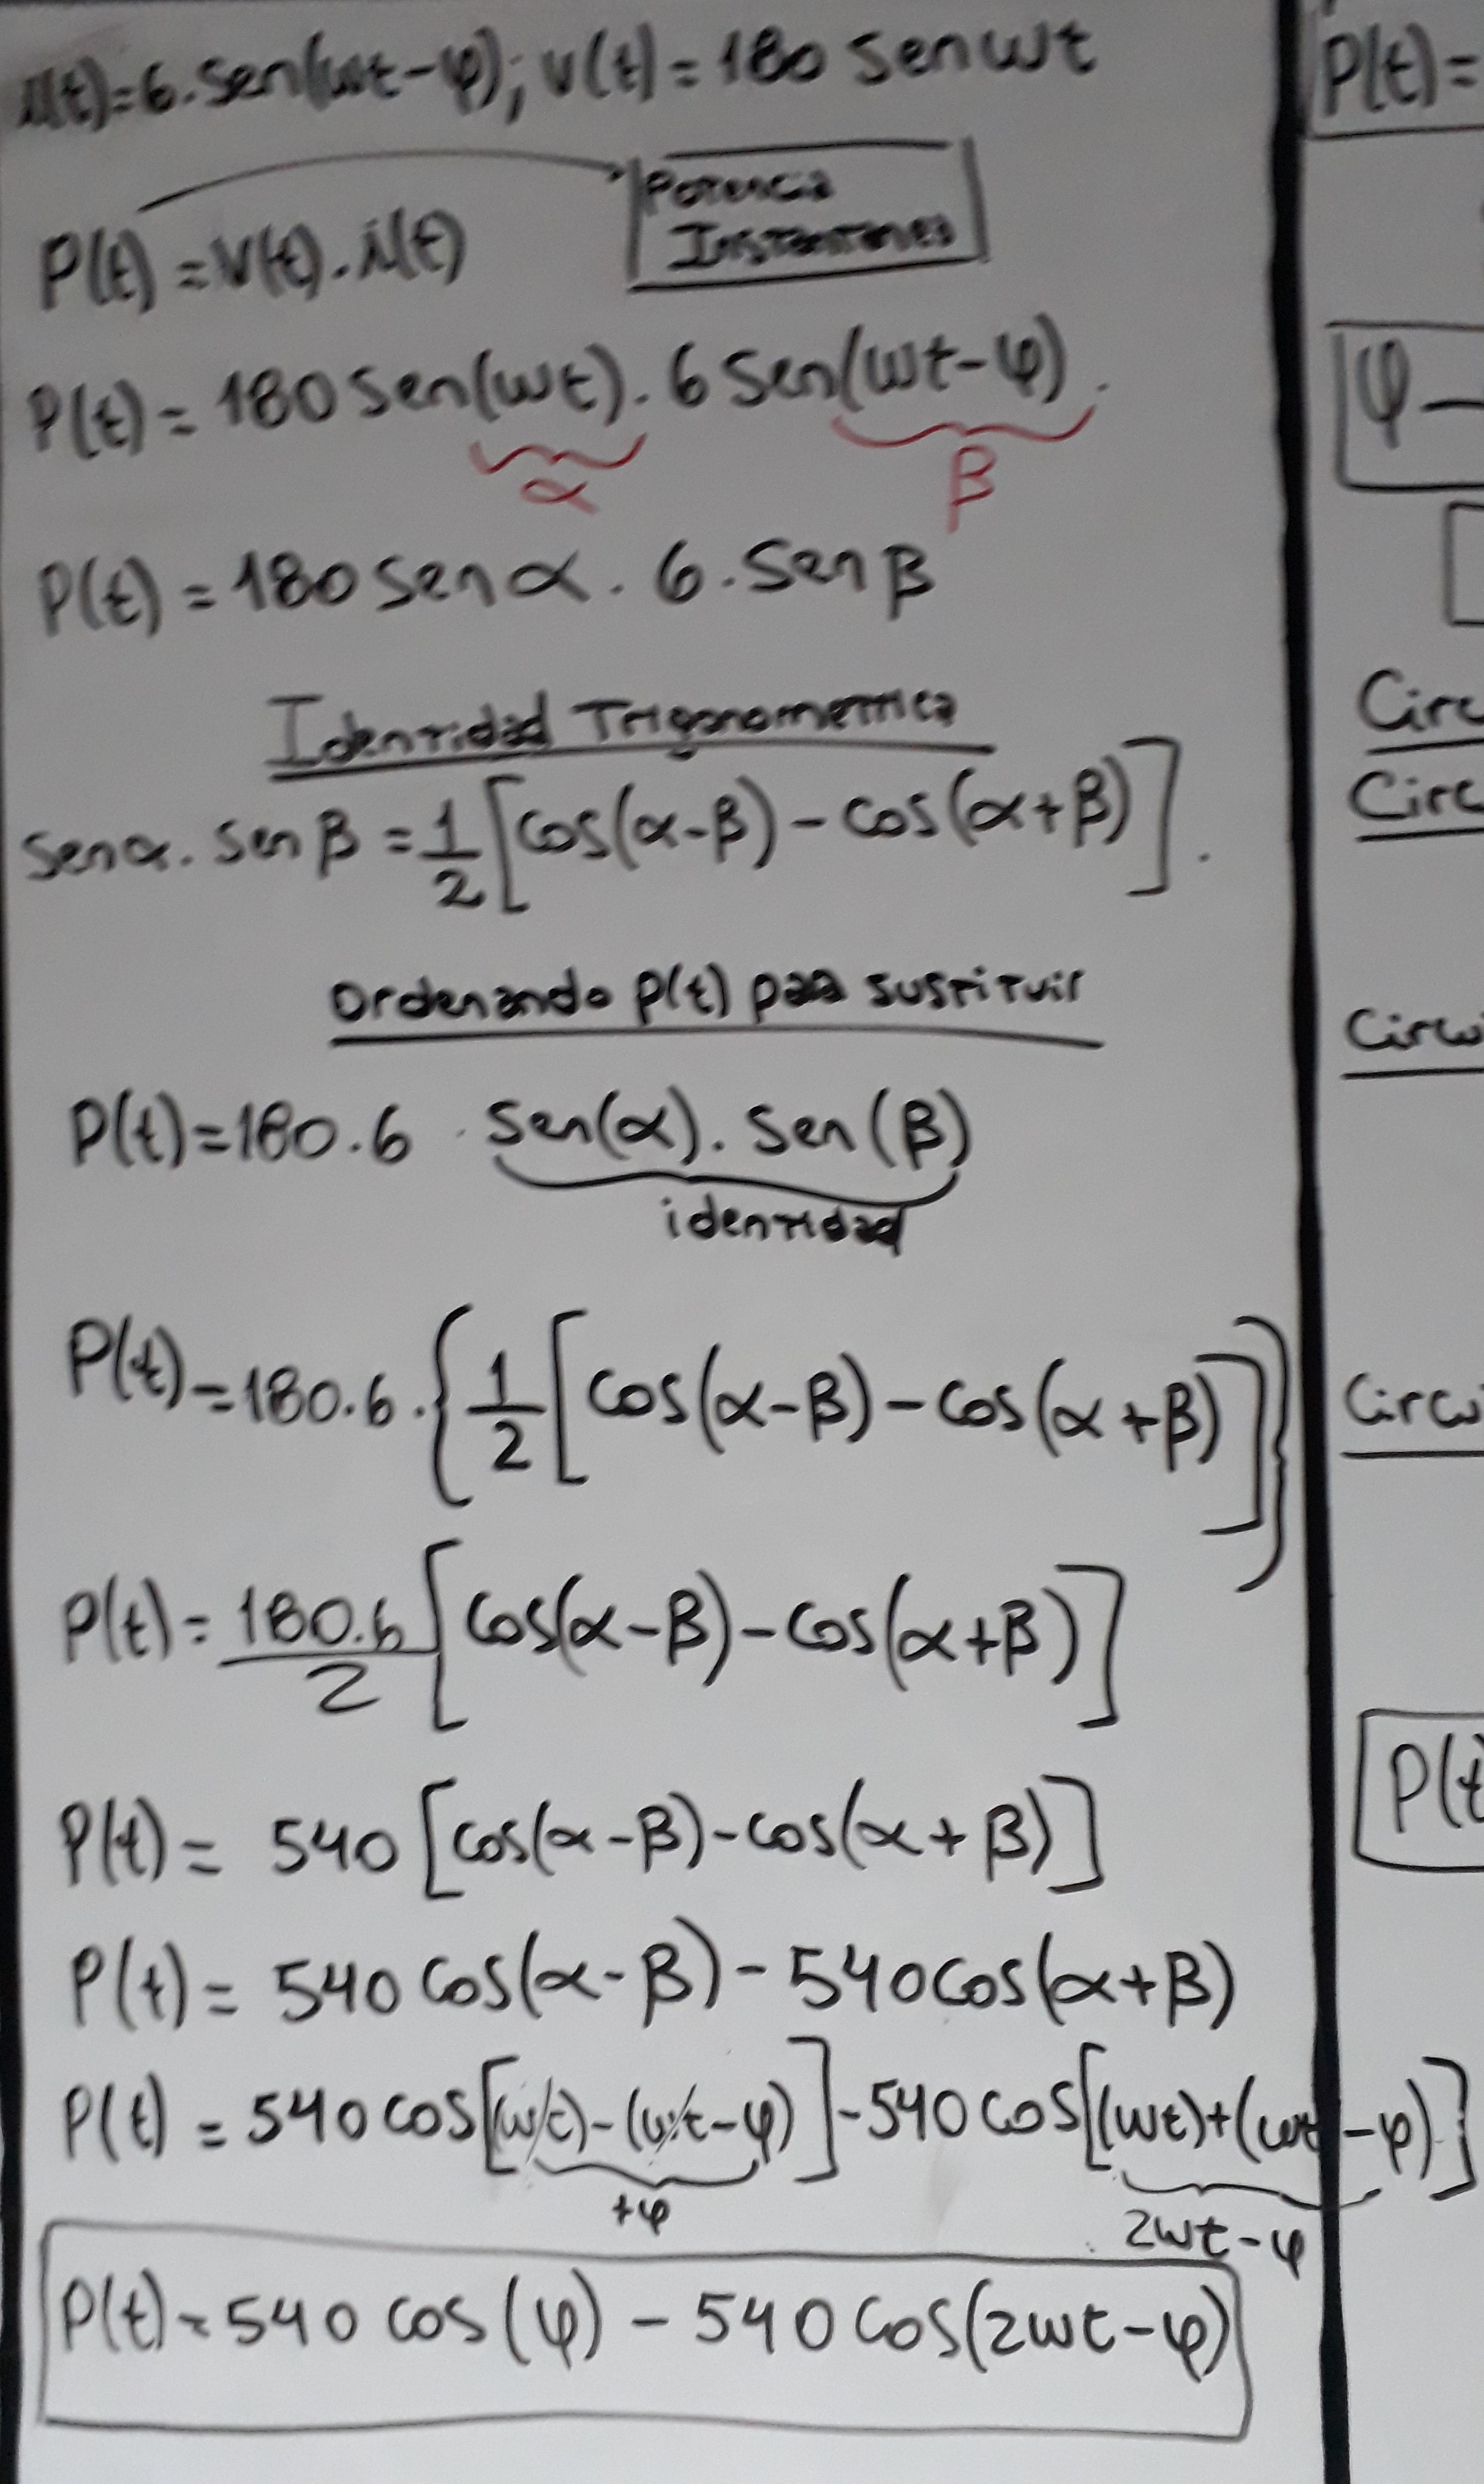 i(t)=6.sen(wt-φ); v(t)=180 senwt
P(t)=V(t).i(t)
Potencia
Instantanea
P(t)=180 sen(wt).6 sen(wt-φ).
α β
P(t)=180 sen α . 6 . sen β
Identidad Trigonometrica
senα. sen β = 1/2 [cos(α-β)-cos(α+β)].
Ordenando p(t) para sustituir
P(t)=180.6 . sen(α). sen(β)
identidad
P(t)=180.6.{1/2 [cos(α-β)-cos(α+β)]}
P(t)=180.6/2 [cos(α-β)-cos(α+β)]
P(t)= 540 [cos(α-β)-cos(α+β)]
P(t)= 540 cos(α-β)-540cos(α+β)
P(t)=540 cos[(wt)-(wt-φ)]-540 cos[(wt)+(wt-φ)]
+φ 2wt-φ
P(t)=540 cos(φ)-540 cos(2wt-φ)
P(t)=
φ-
Circ
Circ
Circu
Circu
P(t